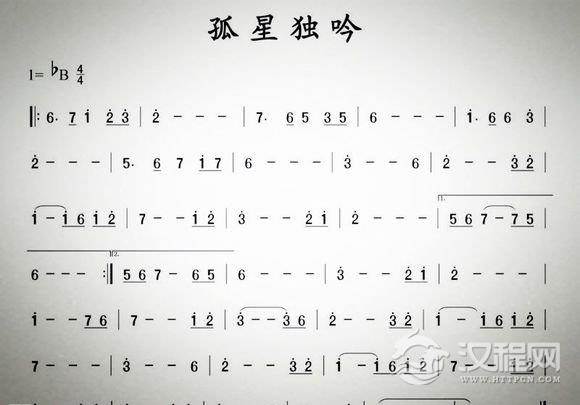 孤星独吟
1= ♭B 4/4
‖: 6. 7̲ i̇ 2̲̇ 3̲̇ | 2̇ - - - | 7. 6̲ 5̲ 3̲ 5̲ | 6 - - - | i̇. 6̲ 6 3̇ |
2̇ - - - | 5. 6̲ 7 i̲̇ 7̲ | 6 - - - | 3̇ - - 6 | 2̇ - - 3̲̇ 2̲̇ |
i̇ - i̲̇ 6̲ i̲̇ 2̲̇ | 7 - - i̲̇ 2̲̇ | 3̇ - - 2̲̇ i̲̇ | 2̇ - - - | 1. 5̲ 6̲ 7 - 7̲ 5̲ |
6 - - - :‖ 2. 5̲ 6̲ 7 - 6̲ 5̲ | 6 - - - | 3̇ - - 2̲̇ i̲̇ | 2̇ - - - |
i̇ - - 7̲ 6̲ | 7 - - i̲̇ 2̲̇ | 3̇ - - 3̲̇ 6̲ | 2̇ - - i̲̇ 2̲̇ | i̇ - i̲̇ 6̲ i̲̇ 2̲̇ |
7 - - - | 3̇ - - 6 | 2̇ - - 3̲̇ 2̲̇ | i̇ - i̲̇ 6̲ i̲̇ 2̲̇ | 7 - - i̲̇ 2̲̇ |
汉程网
WWW.HTTPCN.COM